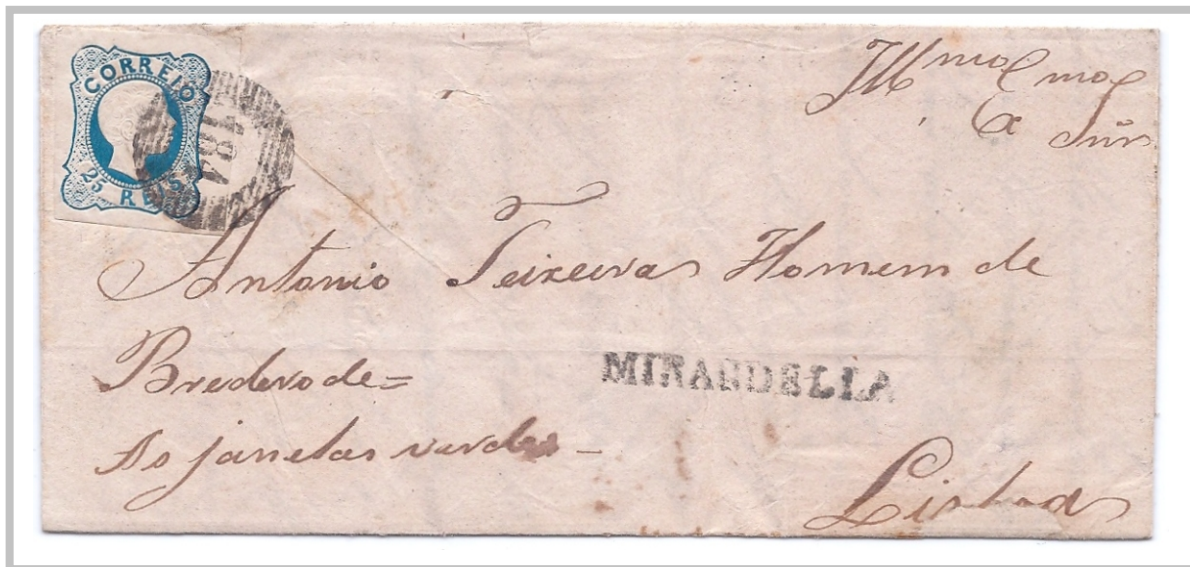 CORREIO
25 REIS
184
Illmo Exmo
Snr
Antonio Teixeira Homem de
Brederode=
MIRANDELLA
As janelas verdes -
Lisboa